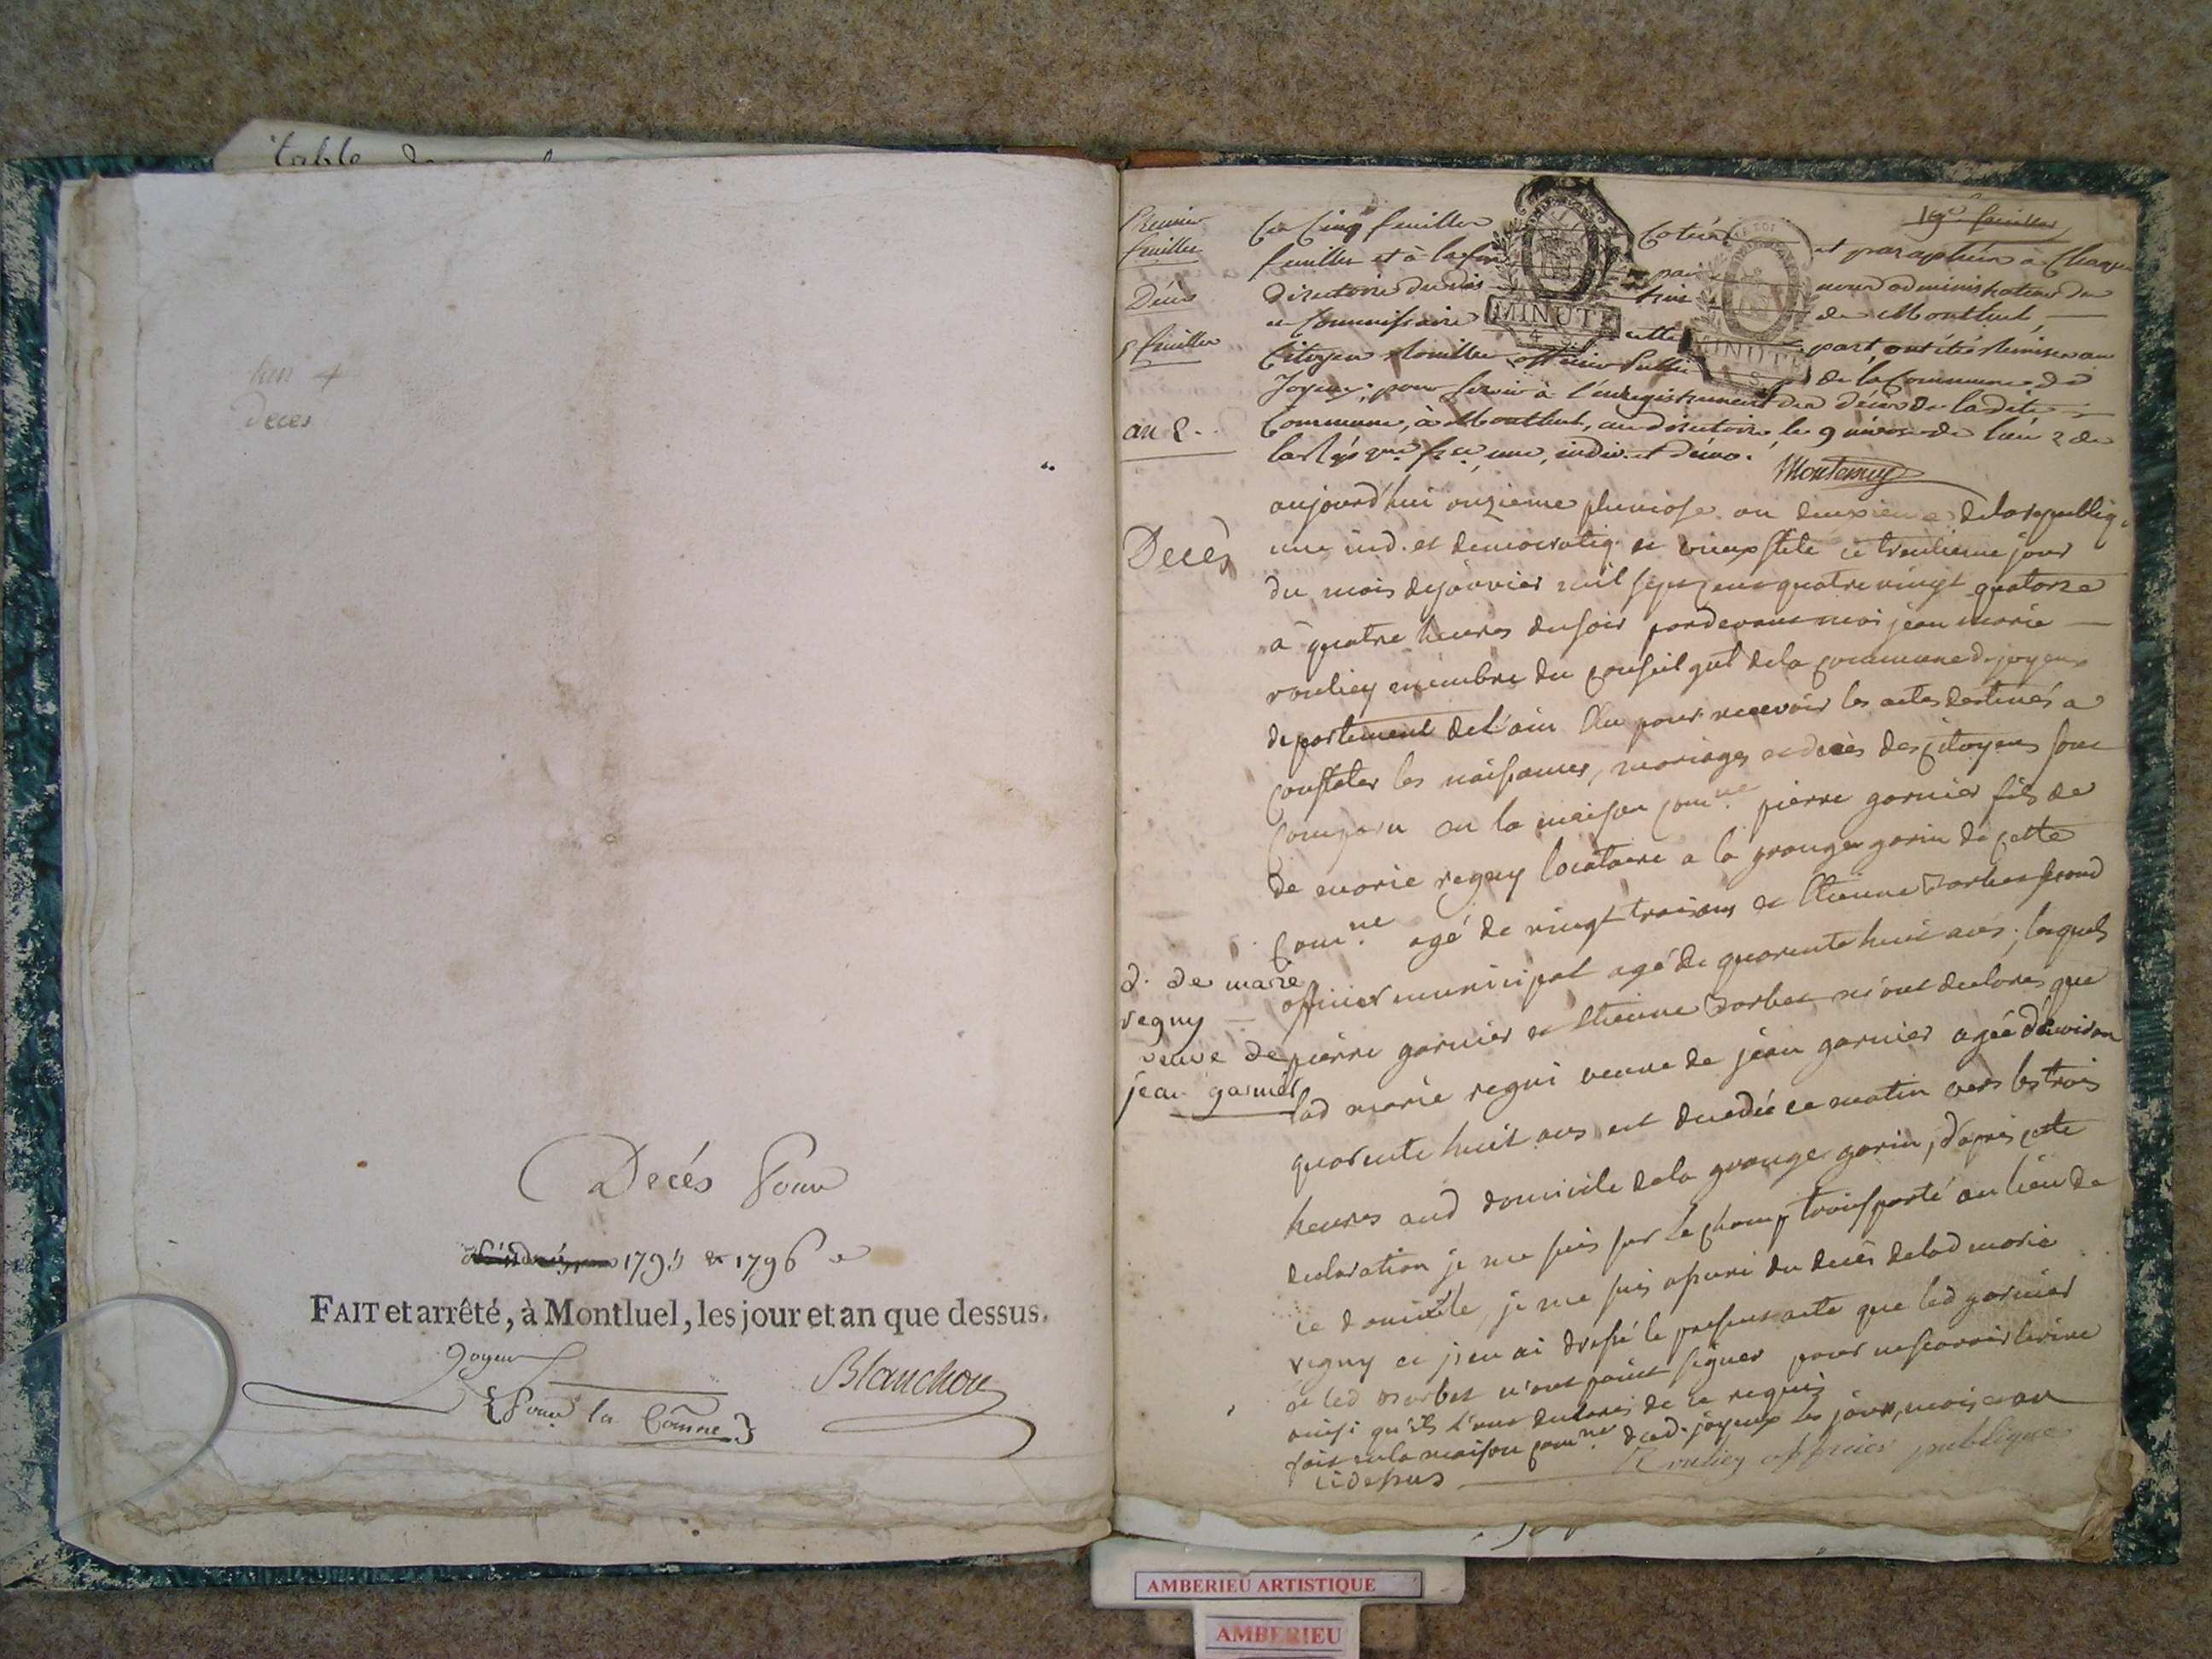 table
lan 4
deces
Decés Pour
1795 & 1796
FAIT et arrêté, à Montluel, les jour et an que dessus.
Joyeux
Blanchon
Pour la Comne
19e feuillet
Premier
feuillet
Décès
5 feuillets
an 2.
Ce Cinq feuillets
Cotées
et paraphées à Chaque
feuillet et à la fin
par
nous administrateur du
Directoire du dis
trict
de Montluel,
et Commissaire
cette
part, ont été Remises au
Citoyen Roulliez officier Public
de la Commune de
Joyeux, pour servir à l'enregistrement des décès de la dite
Commune, à Montluel, au directoire, le 9 nivose de l'an 2 de
la Rép. une, indiv. et démo.
MINUTE
MINUTE
Decès
aujourd'hui onzieme pluviose an deuxieme de la republiq.
une ind. et democratiq. et vieux stile ce trentieme jour
du mois de janvier mil sept cent quatre vingt quatorze
a quatre heures du soir pardevant moi jean marie
rouliez membre du conseil gnl de la commune de joyeux
departement de l'ain élu pour recevoir les actes destinés a
constater les naissances, mariages et decès des citoyens sont
comparu en la maison comne. pierre garnier fils de
de marie regny locataire a la grange garin de cette
comne. agé de vingt trois ans et Etienne Barbet fecond
officier municipal agé de quarente huit ans; lesquels
d. de marie
regny
veuve de
jean garnier
pierre garnier et Etienne Barbet m'ont declarés que
lad marie regni veuve de jean garnier agée d'environ
quarente huit ans est decedée ce matin vers les trois
heures aud domicile de la grange garin, d'après cette
declaration je me suis sur le champ transporté au lieu de
ce domicile, je me suis assuré du decès de lad marie
regny et j'en ai dressé le present acte que led garnier
et led Barbet n'ont point signer pour ne scavoir écrire
ainsi qu'ils l'ont declarés de ce requis
fait en la maison comne. dud. joyeux les jour, mois et an
ci dessus
Rouliez officier publique
AMBERIEU ARTISTIQUE
AMBERIEU